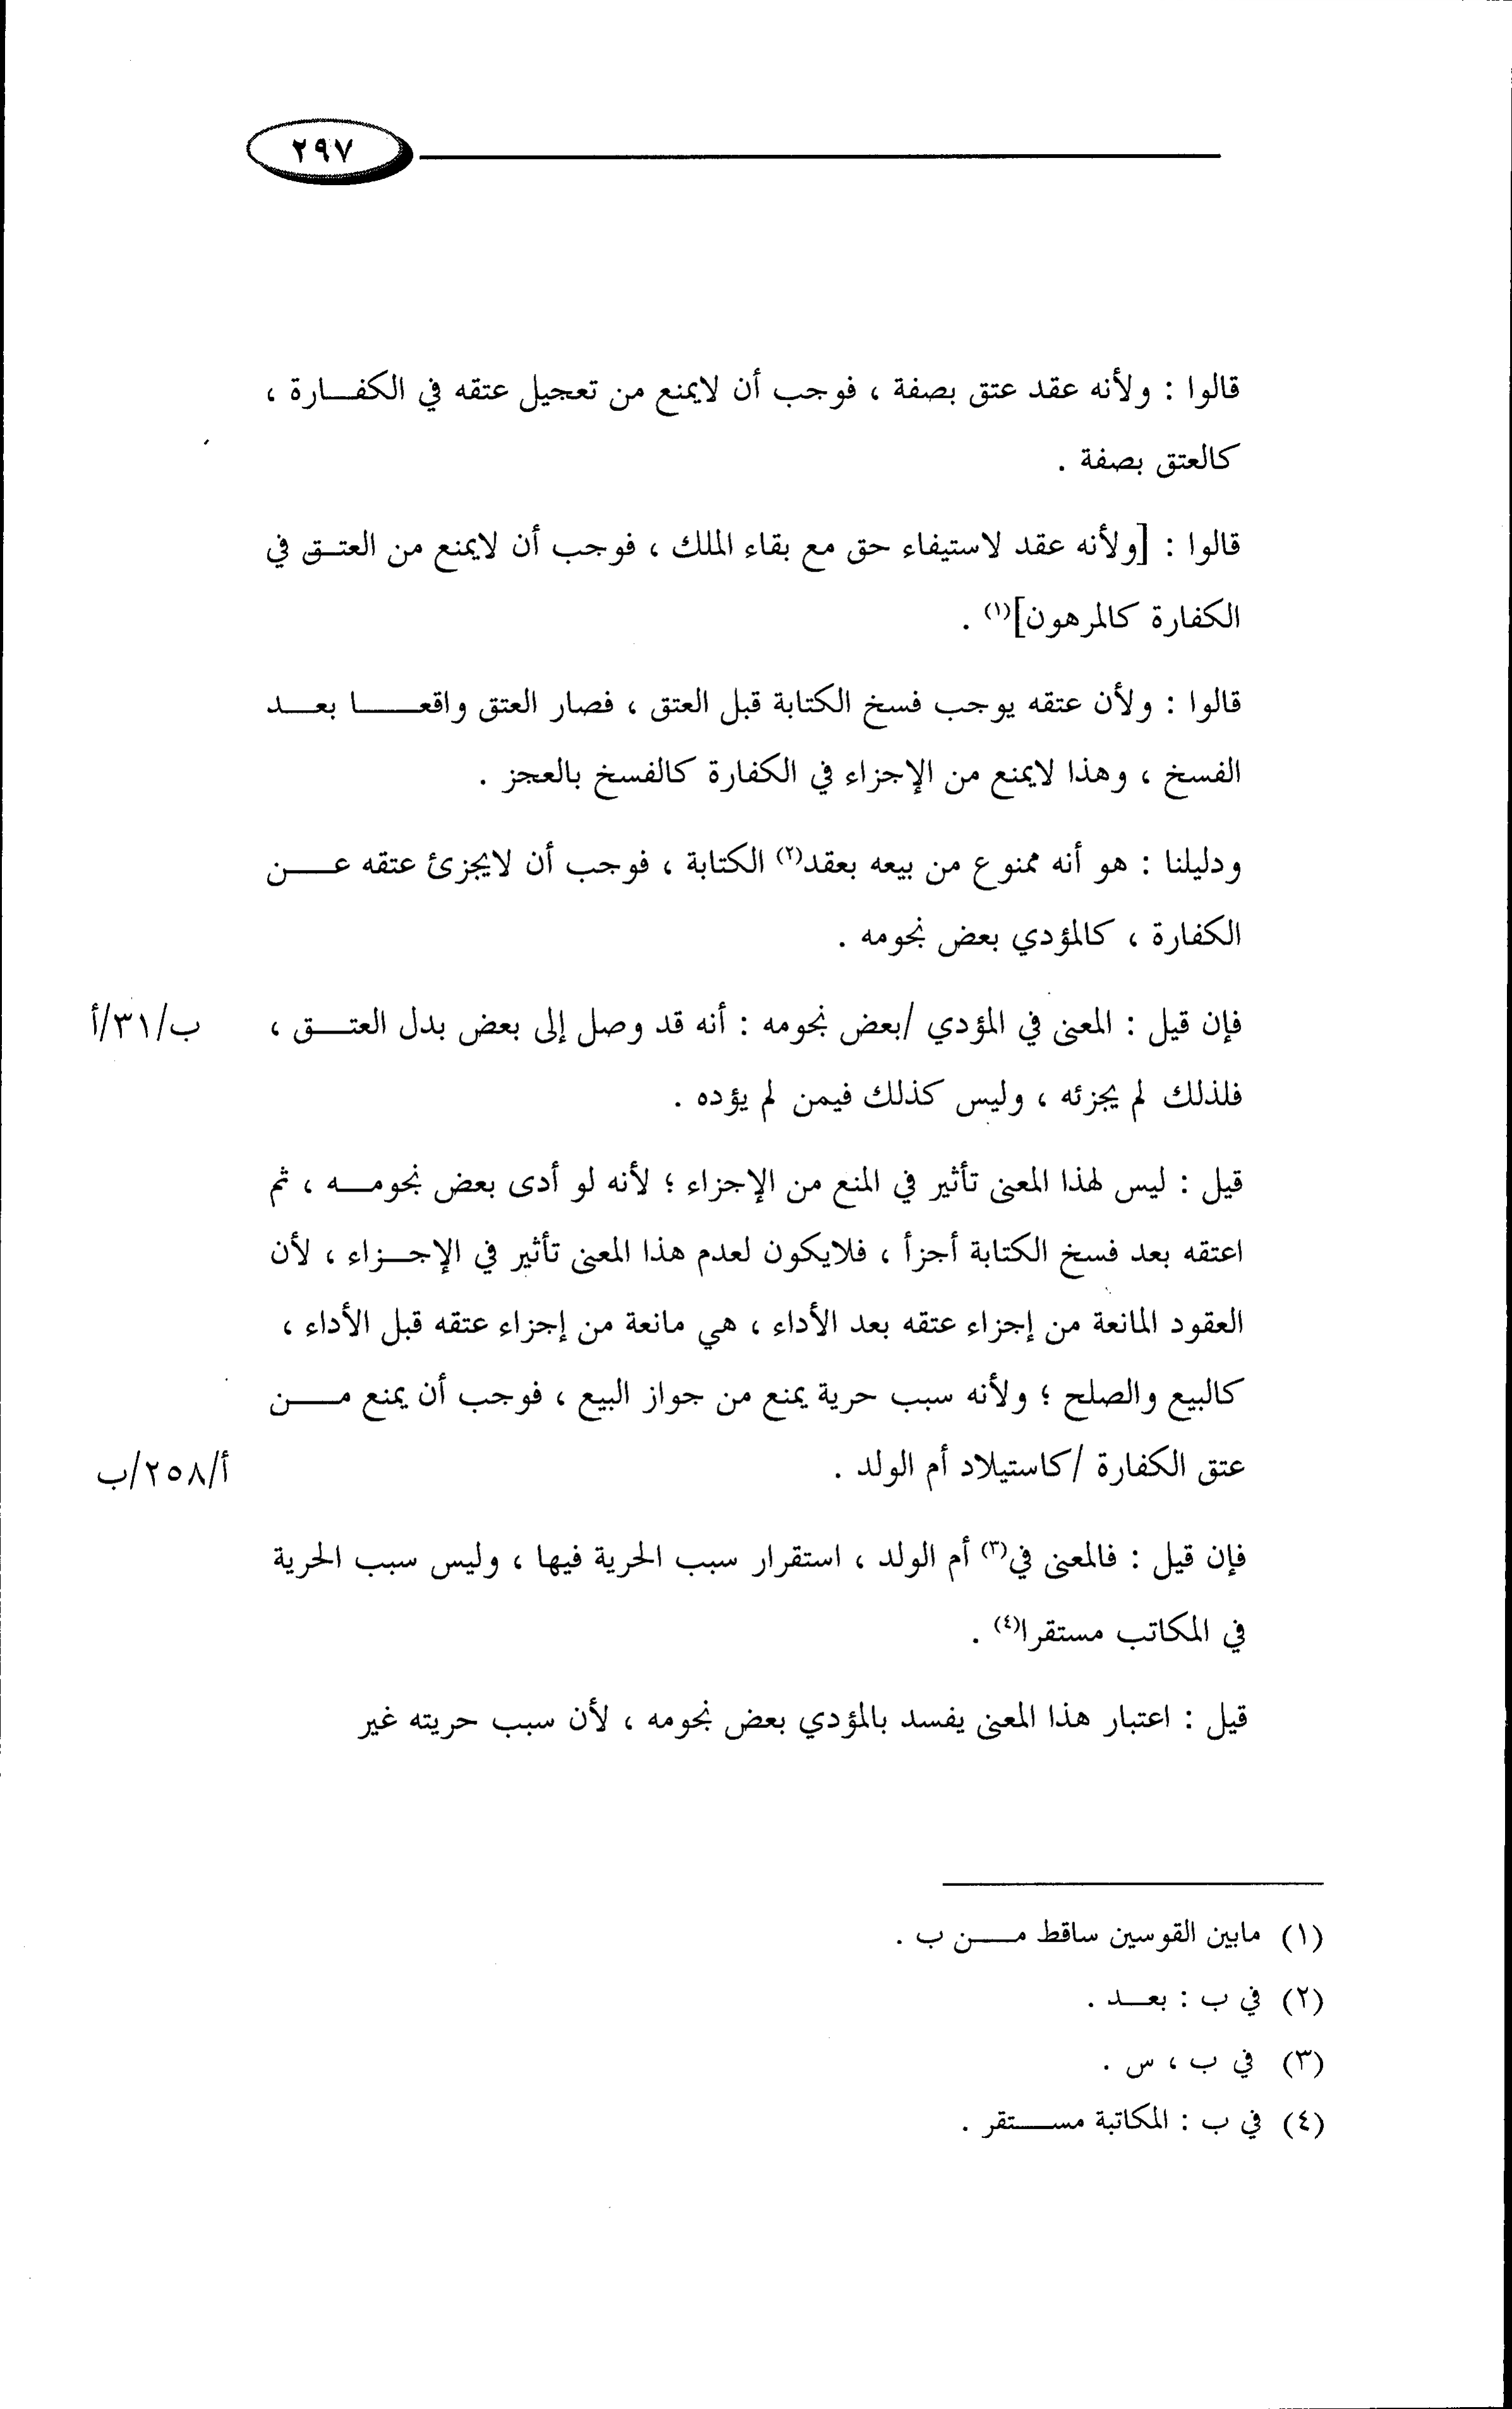 ٢٩٧
قالوا : ولأنه عقد عتق بصفة ، فوجب أن لايمنع من تعجيل عتقه في الكفـــارة ،
كالعتق بصفة .
قالوا : [ولأنه عقد لاستيفاء حق مع بقاء الملك ، فوجب أن لايمنع من العتــق في
الكفارة كالمرهون](١) .
قالوا : ولأن عتقه يوجب فسخ الكتابة قبل العتق ، فصار العتق واقعــــا بعــد
الفسخ ، وهذا لايمنع من الإجزاء في الكفارة كالفسخ بالعجز .
ودليلنا : هو أنه ممنوع من بيعه بعقد(٢) الكتابة ، فوجب أن لايجزئ عتقه عـــن
الكفارة ، كالمؤدي بعض نجومه .
فإن قيل : المعنى في المؤدي /بعض نجومه : أنه قد وصل إلى بعض بدل العتـــق ، ب/٣١/أ
فلذلك لم يجزئه ، وليس كذلك فيمن لم يؤده .
قيل : ليس لهذا المعنى تأثير في المنع من الإجزاء ؛ لأنه لو أدى بعض نجومـــه ، ثم
اعتقه بعد فسخ الكتابة أجزأ ، فلايكون لعدم هذا المعنى تأثير في الإجــزاء ، لأن
العقود المانعة من إجزاء عتقه بعد الأداء ، هي مانعة من إجزاء عتقه قبل الأداء ،
كالبيع والصلح ؛ ولأنه سبب حرية يمنع من جواز البيع ، فوجب أن يمنع مـــن
عتق الكفارة /كاستيلاد أم الولد . أ/٢٥٨/ب
فإن قيل : فالمعنى في(٣) أم الولد ، استقرار سبب الحرية فيها ، وليس سبب الحرية
في المكاتب مستقرا(٤) .
قيل : اعتبار هذا المعنى يفسد بالمؤدي بعض نجومه ، لأن سبب حريته غير
(١) مابين القوسين ساقط مـــن ب .
(٢) في ب : بعــد .
(٣) في ب ، س .
(٤) في ب : المكاتبة مســـتقر .